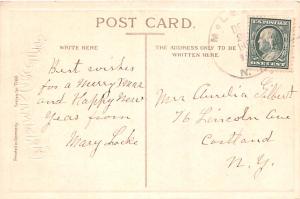 POST CARD.
WRITE HERE
THE ADDRESS ONLY TO BE
WRITTEN HERE.
Best wishes
for a Merry Xmas
and Happy New
Year from
Mary Locke
Mrs Aurelia Gilbert
76 Lincoln Ave
Cortland
N.Y.
U.S. POSTAGE
ONE CENT
N.Y.